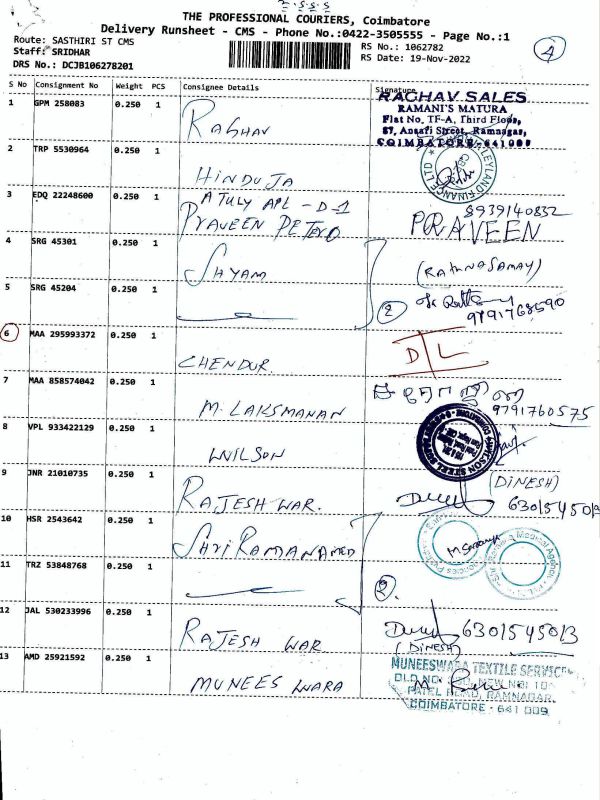 THE PROFESSIONAL COURIERS, Coimbatore
Delivery Runsheet - CMS - Phone No.:0422-3505555 - Page No.:1
Route: SASTHIRI ST CMS
Staff: SRIDHAR
DRS No.: DCJB106278201
RS No.: 1062782
RS Date: 19-Nov-2022
4
S No Consignment No Weight PCS Consignee Details Signature
1 GPM 258083 0.250 1 RAGHAV
RAGHAV SALES
RAMANI'S MATURA
Flat No. TF-A, Third Floor,
87, Ansari Street, Ramnagar,
COIMBATORE-641009
2 TRP 5530964 0.250 1 HINDUJA
LEYLAND FINANCE LTD
3 EDQ 22248600 0.250 1 ATULY APL - D-1
PRAVEEN PETER D
8939140832
PRAVEEN
4 SRG 45301 0.250 1 SHYAM
(RATHNASAMAY)
5 SRG 45204 0.250 1
2
9791768590
6 MAA 295993372 0.250 1 CHENDUR
D/L
7 MAA 858574042 0.250 1 M. LAKSMANAN
9791760575
8 VPL 933422129 0.250 1 WILSON
9 JNR 21010735 0.250 1 RAJESH WAR.
(DINESH)
6301545013
10 HSR 2543642 0.250 1 SHRI RAMANA MED
11 TRZ 53848768 0.250 1
2.
12 JAL 530233996 0.250 1 RAJESH WAR
6301545013
(DINESH)
13 AMD 25921592 0.250 1 MUNEESWARA
MUNEESWARA TEXTILE SERVICE
OLD NO. NEW NO: 10
PATEL ROAD, RAMNAGAR,
COIMBATORE - 641 009